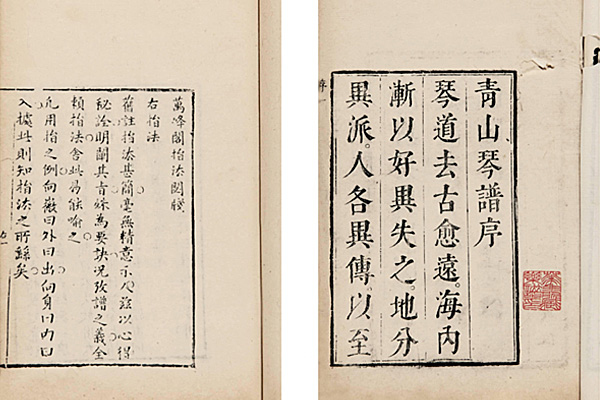 青山琴譜序
琴道去古愈遠。海內
漸以好異失之。地分
異派。人各異傳以至
萬峰閣指法閟牋
右指法
舊註指法甚簡毫無精意示人茲以心得
秘詮明闡其旨為要訣况攷譜之義全
賴指法舍此能喻之
凡用指之例向徽曰外曰出向身曰內曰
入據此則知指法之所繇矣